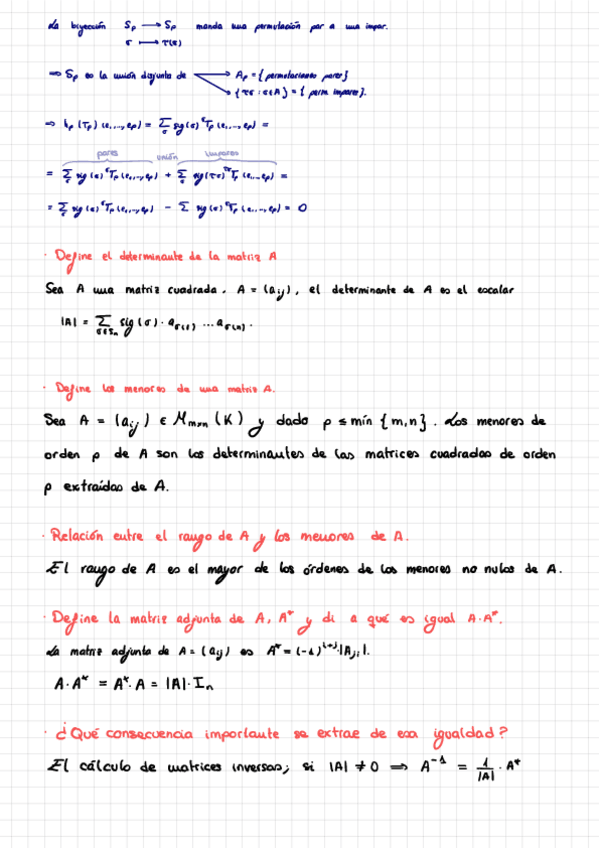 La biyección Sp → Sp manda una permutación par a una impar.
σ ⟼ τ(σ)
⇒ Sp es la unión disjunta de Ap = { permutaciones pares }
{ τσ : σ(A } = { perm impares }.
⇒ hp (Tp) (e1,...,ep) = Σσ sig(σ) σTp (e1,...,ep) =
pares unión impares
= Σσ sig(σ) σTp (e1,...,ep) + Σσ sig(τσ) τσTp (e1,...,ep) =
= Σσ sig(σ) σTp (e1,...,ep) - Σ sig(σ) σTp (e1,...,ep) = 0
· Define el determinante de la matriz A
Sea A una matriz cuadrada. A = (aij), el determinante de A es el escalar
|A| = Σσ∈Sn sig(σ) · aσ(1) ... aσ(n).
· Define los menores de una matriz A.
Sea A = (aij) ∈ Mm×n (K) y dado p ≤ mín {m,n}. Los menores de
orden p de A son los determinantes de las matrices cuadradas de orden
p extraídas de A.
· Relación entre el rango de A y los menores de A.
El rango de A es el mayor de los órdenes de los menores no nulos de A.
· Define la matriz adjunta de A, A* y di a qué es igual A·A*.
La matriz adjunta de A = (aij) es A* = (-1)^i+j · |Aji|.
A·A* = A*·A = |A|·In
· ¿Qué consecuencia importante se extrae de esa igualdad?
El cálculo de matrices inversas; si |A| ≠ 0 ⇒ A^-1 = 1/|A| · A*